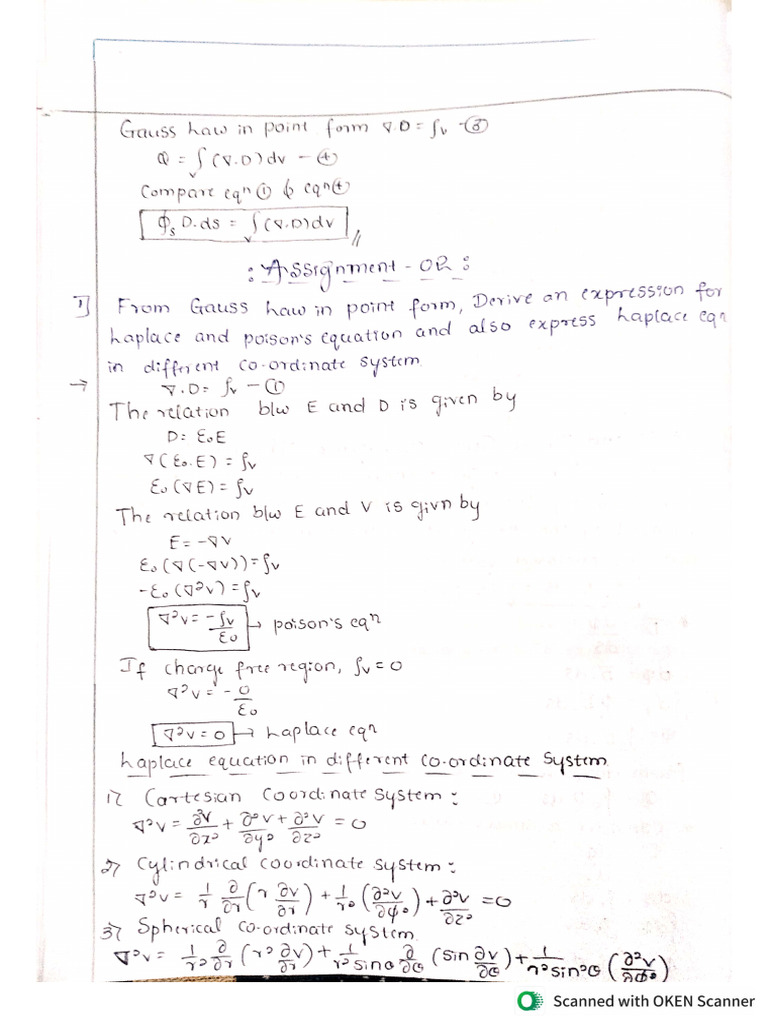 Gauss Law in point form ∇.D = ρv -③
Q = ∫v (∇.D) dv - ④
Compare eqn ① & eqn ④
∮s D.ds = ∫v (∇.D) dv //
: Assignment - 02 :
1] From Gauss Law in point form, Derive an expression for
Laplace and poison's equation and also express Laplace eqn
in different co-ordinate system
→ ∇.D = ρv - ①
The relation b/w E and D is given by
D = ε₀E
∇(ε₀.E) = ρv
ε₀(∇E) = ρv
The relation b/w E and V is givn by
E = -∇V
ε₀(∇(-∇V)) = ρv
-ε₀(∇²V) = ρv
∇²V = -ρv/ε₀ → poison's eqn
If charge free region, ρv = 0
∇²V = -0/ε₀
∇²V = 0 → Laplace eqn
Laplace equation in different co-ordinate system
1) Cartesian coordinate system :
∇²V = ∂²V/∂x² + ∂²V/∂y² + ∂²V/∂z² = 0
2) Cylindrical coordinate system :
∇²V = 1/r ∂/∂r (r ∂V/∂r) + 1/r² (∂²V/∂φ²) + ∂²V/∂z² = 0
3) Spherical co-ordinate system
∇²V = 1/r² ∂/∂r (r² ∂V/∂r) + 1/r² sinθ ∂/∂θ (sin ∂V/∂θ) + 1/r² sin²θ (∂²V/∂φ²)
Scanned with OKEN Scanner